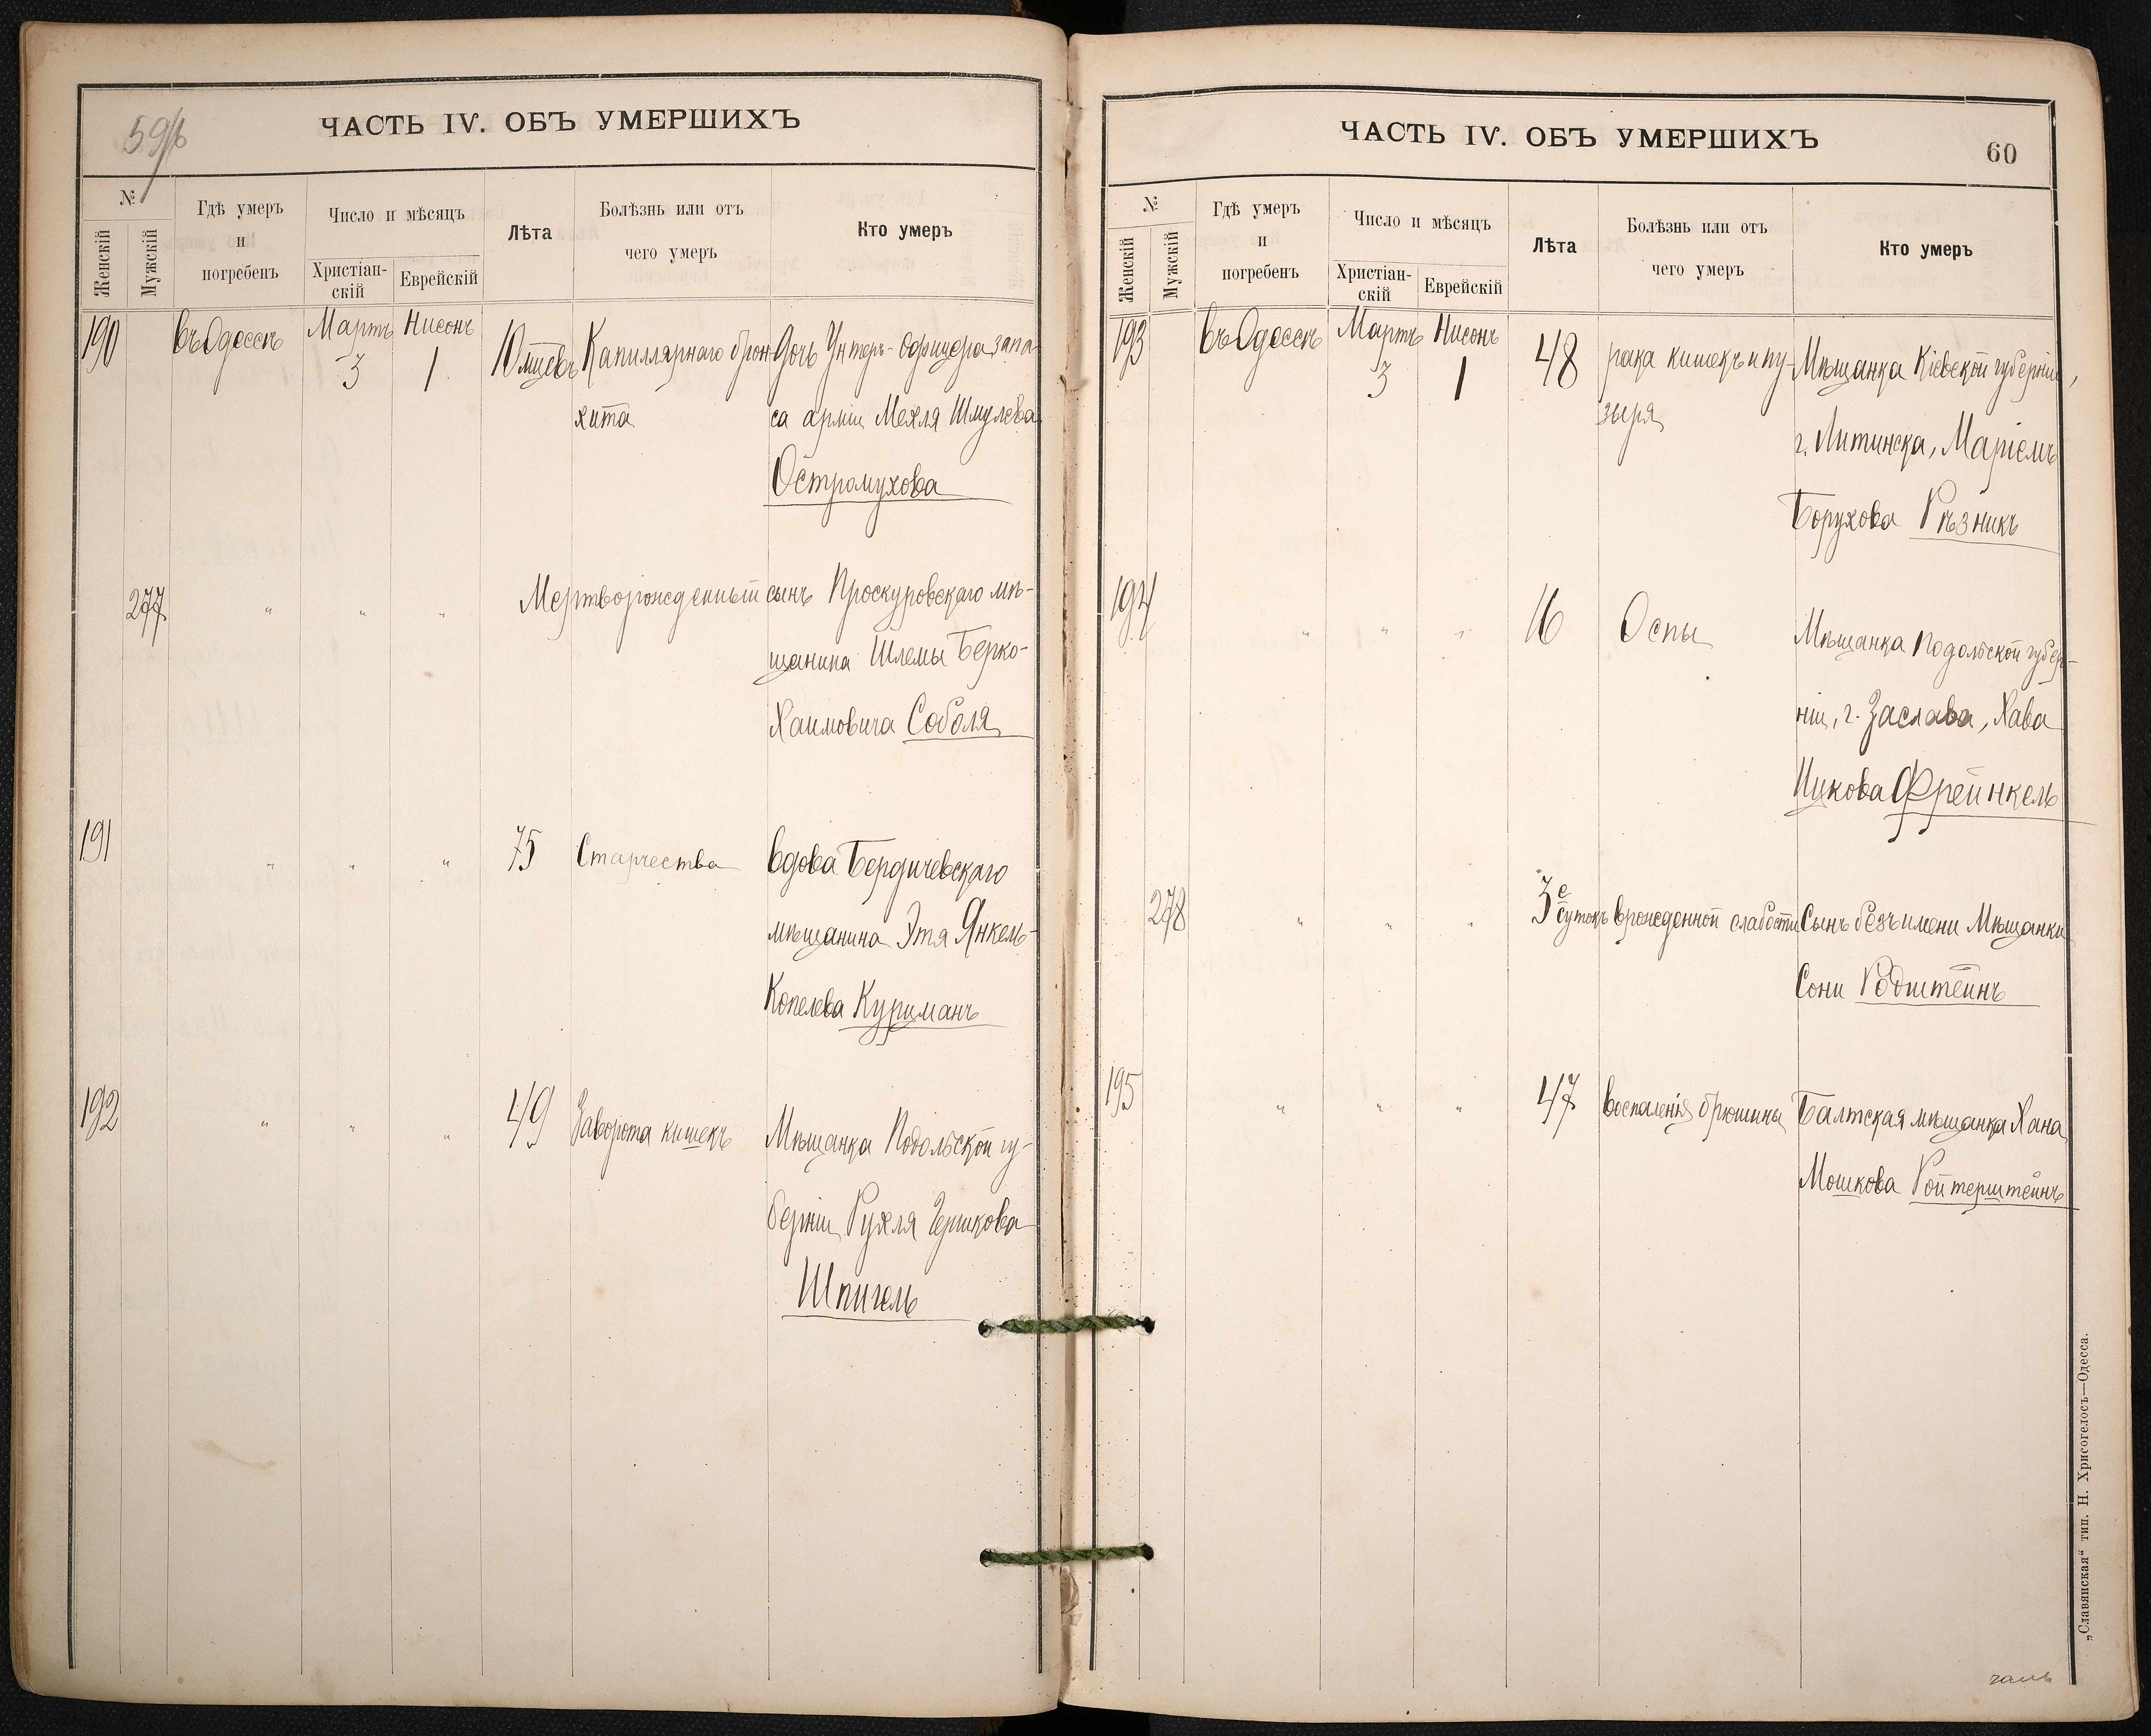 59/б
ЧАСТЬ IV. ОБЪ УМЕРШИХЪ
№
Женскій
Мужскій
Гдѣ умеръ
и
погребенъ
Число и мѣсяцъ
Христіан-
скій
Еврейскій
Лѣта
Болѣзнь или отъ
чего умеръ
Кто умеръ
190 въ Одессѣ Мартъ 3 Нисонъ 1 10 мцевъ Капиллярнаго брон- Дочь Унтеръ-Офицера запа-
хита са арміи Мехля Шмулева
Остромухова
277 " " " Мертворожденный сынъ Проскуровскаго мѣ-
щанина Шлемы Берко-
Хаимовича Соболя
191 " " " 75 Старчества Вдова Бердичевскаго
мѣщанина Этя Янкель-
Копелева Курцманъ
192 " " " 49 Заворота кишекъ Мѣщанка Подольской гу-
берніи Рухля Гершкова
Шпигель
ЧАСТЬ IV. ОБЪ УМЕРШИХЪ
60
№
Женскій
Мужскій
Гдѣ умеръ
и
погребенъ
Число и мѣсяцъ
Христіан-
скій
Еврейскій
Лѣта
Болѣзнь или отъ
чего умеръ
Кто умеръ
193 въ Одессѣ Мартъ 3 Нисонъ 1 48 рака кишекъ и пу- Мѣщанка Кіевской губерніи,
зыря г. Литинска, Маріемъ
Борухова Рѣзникъ
194 " " " 16 Оспы Мѣщанка Подольской губер-
ніи, г. Заслава, Хава
Ицкова Фрейнкель
278 " " " 3е сутокъ врожденной слабости Сынъ безъ имени Мѣщанки
Сони Родштейнъ
195 " " " 47 воспаленія брюшины Балтская мѣщанка Хана
Мошкова Ройтерштейнъ
„Славянская“ тип. Н. Хрисогелосъ—Одесса.